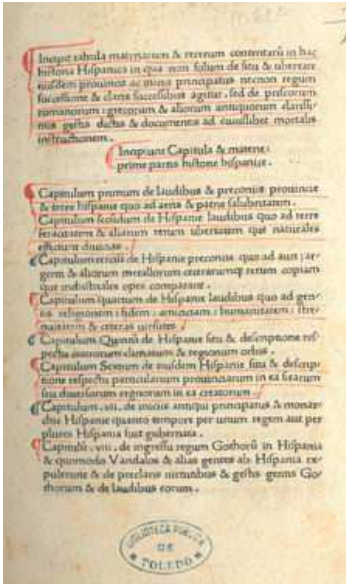 Incipit tabula materiarum & rerum contentarū in hac
historia Hispanica in qua non solum de situ & ubertate
eiusdem prouincie ac mira principatus necnon regum
successione & claris successibus agitur. sed de priscorum
romanorum : grecorum & aliorum antiquorum clarissi-
mis gestis dictis & documentis ad cuiuslibet mortalis
instructionem .
Incipiunt Capitula & materie:
prime partis historie hispanice .
Capitulum primum de laudibus & preconiis prouincie
& terre hispanie quo ad aeris & patrie salubritatem .
Capitulum secūdum de Hispanie laudibus quo ad terre
feracitatem & aliarum rerum ubertatem que naturales
efficiunt diuicias .
Capitulum terciū de Hispanie preconiis quo ad auri : ar-
genti & aliorum metallorum ceterarumq; rerum copiam
que industriales opes comparant .
Capitulum quartum de Hispanie laudibus quo ad gen-
tis religionem : fidem : amiciciam : humanitatem : stre-
nuitatem & ceteras uirtutes .
Capitulum Quintū de Hispanie situ & descriptione res-
pectu aliorum climatum & regionum orbis .
Capitulum Sextum de eiusdem Hispanie situ & descrip-
tione respectu particularum prouinciarum in ea sitarum
seu diuersorum regnorum in ea creatorum .
Capitulum .vii. de iniciis antiqui principatus & monar-
chie Hispanie quanto tempore per unum regem aut per
plures Hispania fuit gubernata .
Capitulū. viii. de ingressu regum Gothorū in Hispania
& quomodo Vandalos & alias gentes ab Hispania ex-
pulerunt & de preclaris uirtutibus & gestis gentis Go-
thorum & de laudibus eorum .
BIBLIOTECA PUBLICA
DE
TOLEDO